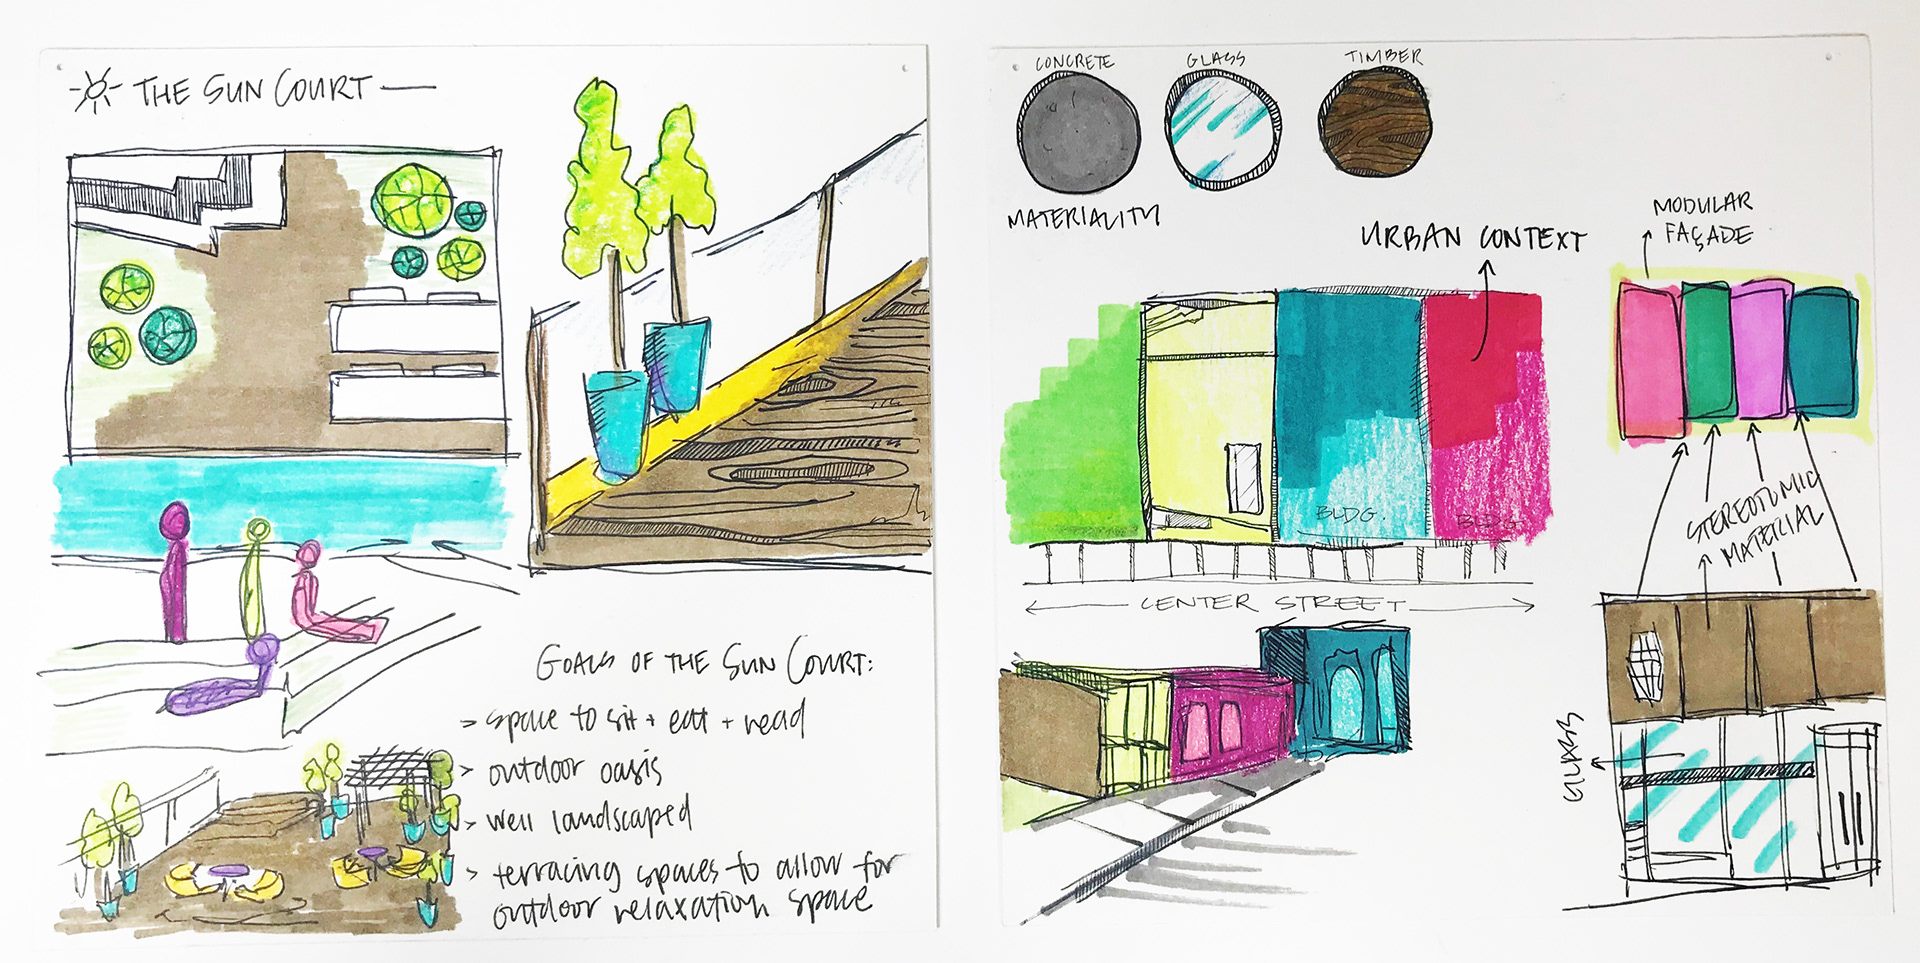 THE SUN COURT
GOALS OF THE SUN COURT:
> space to sit + eat + read
> outdoor oasis
> well landscaped
> terracing spaces to allow for
outdoor relaxation space
CONCRETE
GLASS
TIMBER
MATERIALITY
URBAN CONTEXT
MODULAR
FAÇADE
BLDG.
BLDG.
CENTER STREET
STEREOTOMIC
MATERIAL
GLASS